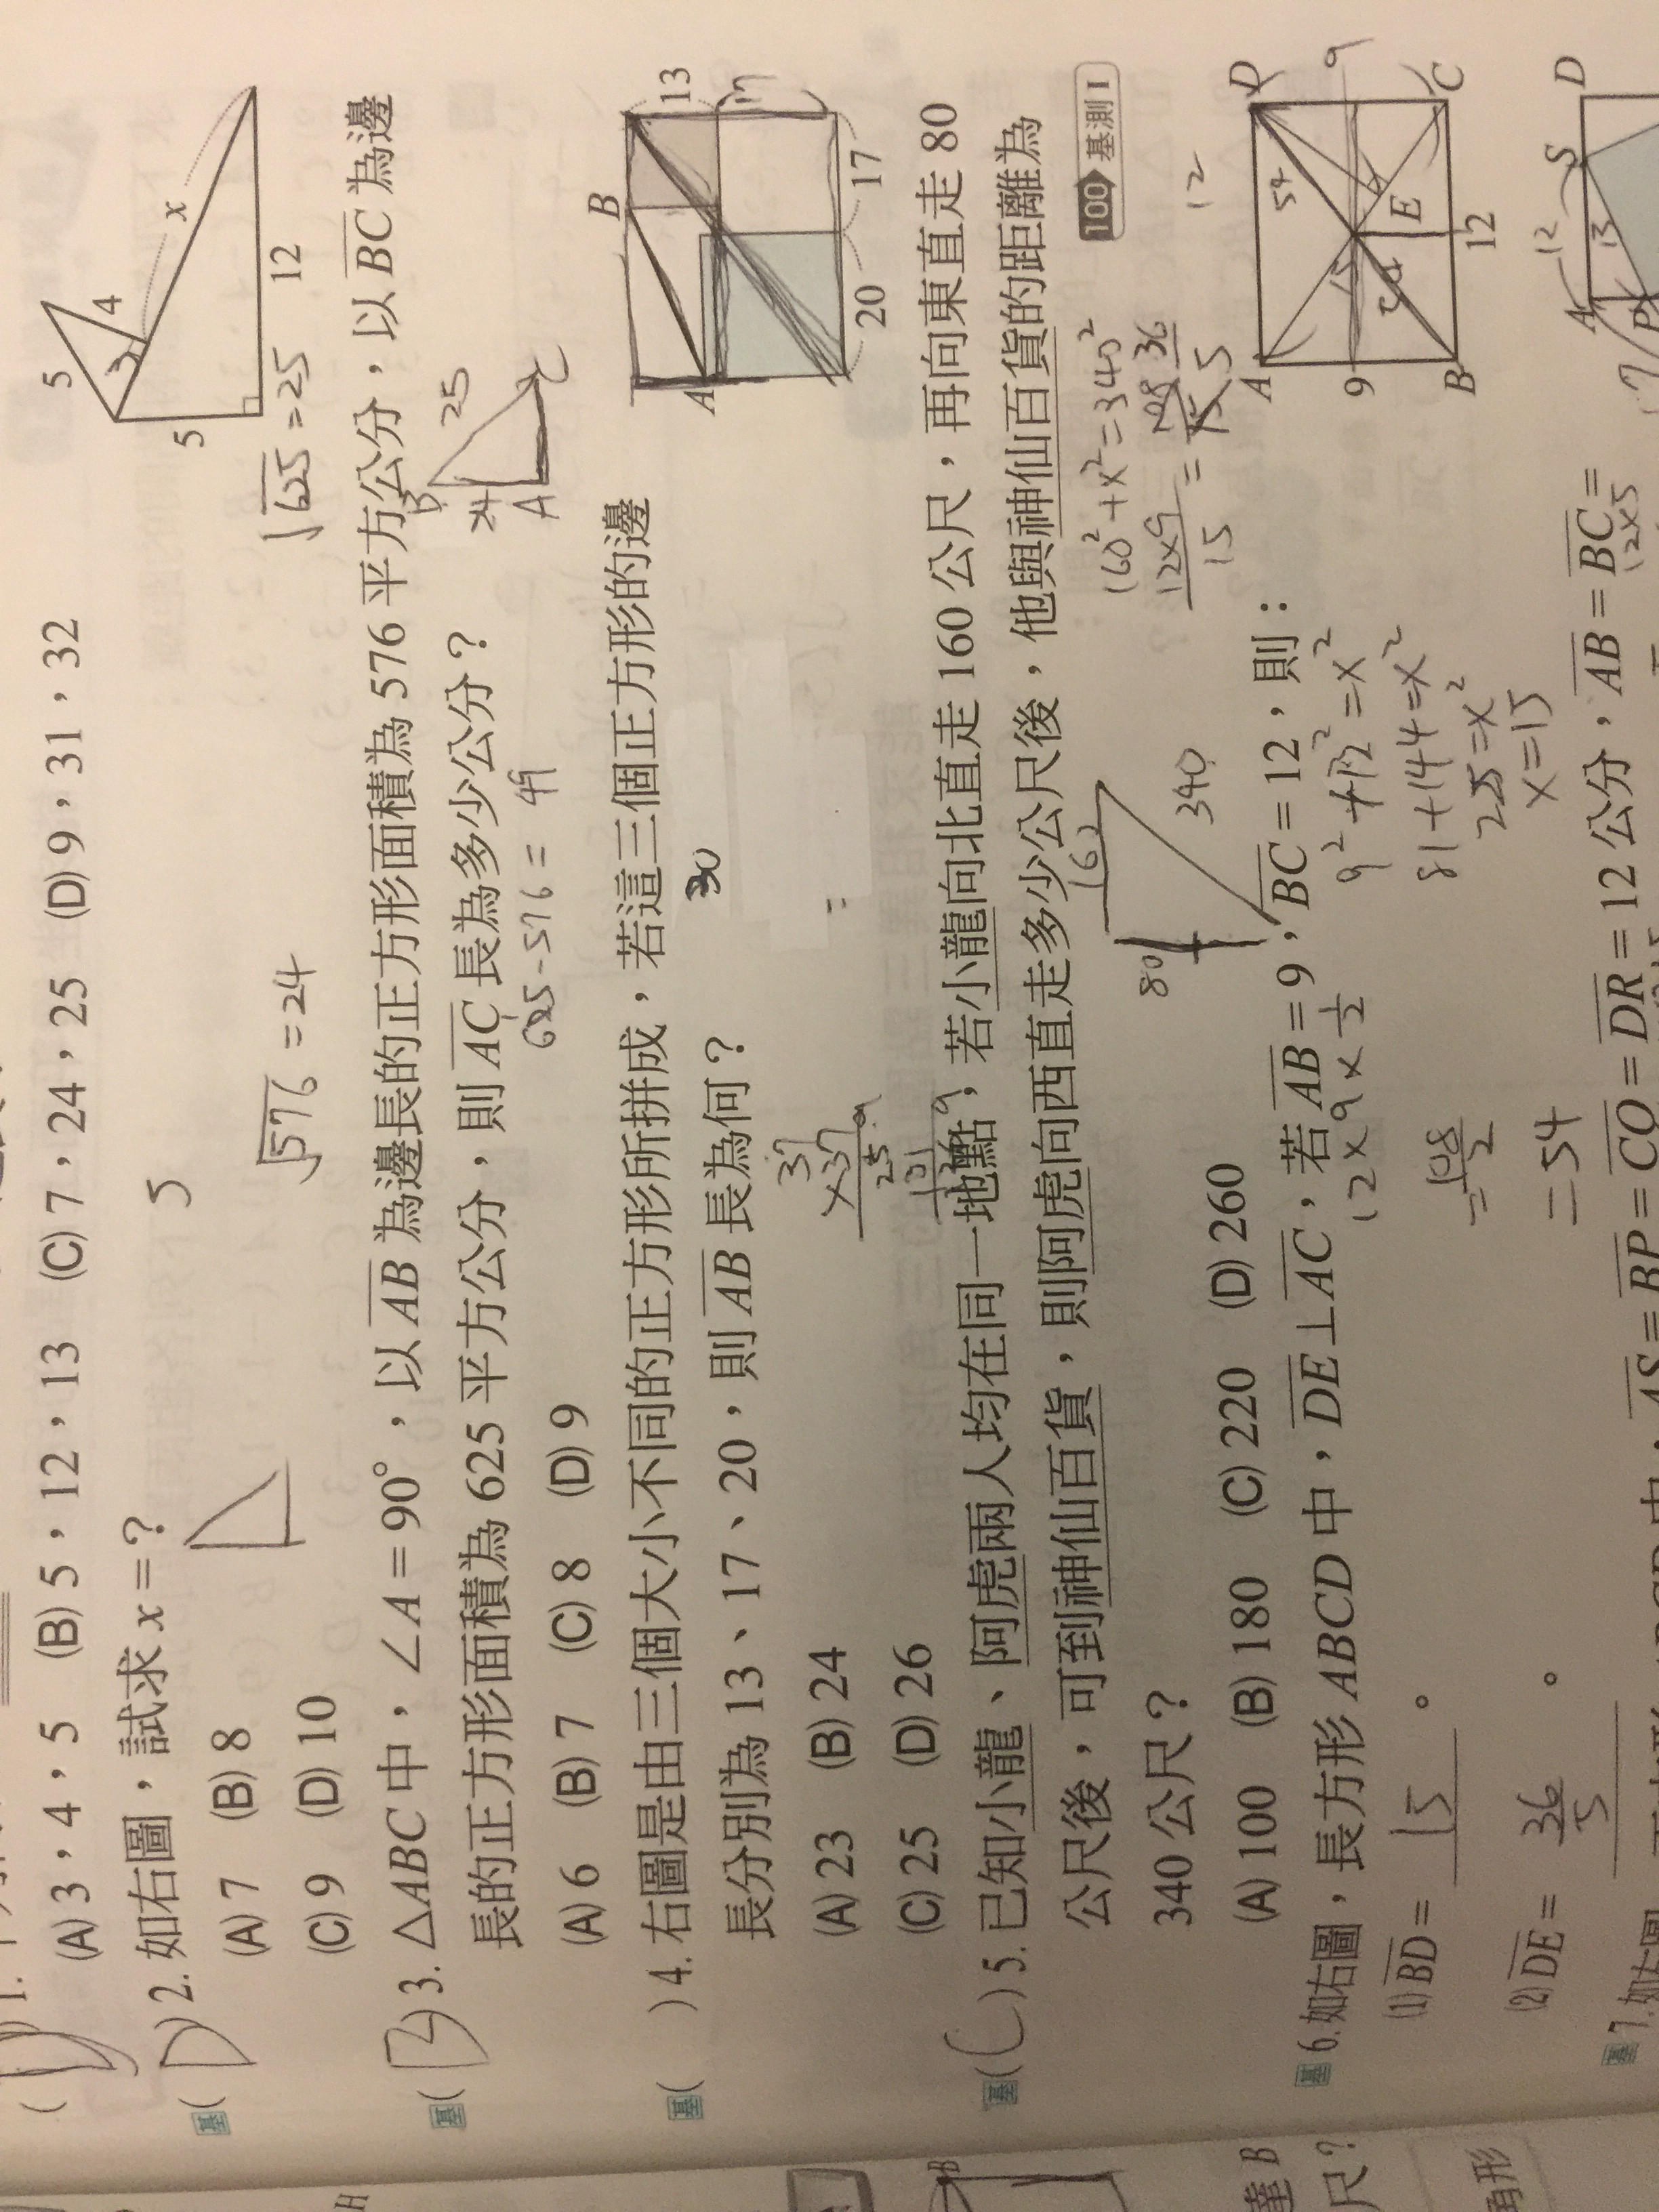 ( D ) 1.
(A) 3，4，5 (B) 5，12，13 (C) 7，24，25 (D) 9，31，32
基( D ) 2. 如右圖，試求 x＝？
(A) 7 (B) 8
(C) 9 (D) 10
5
5
4
x
5
12
√576 = 24
√625 = 25
基( B ) 3. △ABC 中，∠A＝90°，以 AB 為邊長的正方形面積為 576 平方公分，以 BC 為邊
長的正方形面積為 625 平方公分，則 AC 長為多少公分？
(A) 6 (B) 7 (C) 8 (D) 9
625-576 = 49
B
24
25
A
C
基( ) 4. 右圖是由三個大小不同的正方形所拼成，若這三個正方形的邊
長分別為 13、17、20，則 AB 長為何？
(A) 23 (B) 24
(C) 25 (D) 26
30
37
×37
259
B
13
A
17
20
17
基( C ) 5. 已知小龍、阿虎兩人均在同一地點，若小龍向北直走 160 公尺，再向東直走 80
公尺後，可到神仙百貨，則阿虎向西直走多少公尺後，他與神仙百貨的距離為
340 公尺？
100 基測 I
(A) 100 (B) 180 (C) 220 (D) 260
80
160
340
160²+x²=340²
基 6. 如右圖，長方形 ABCD 中，DE⊥AC，若 AB＝9，BC＝12，則：
(1) BD＝ 15 。
(2) DE＝ 36/5 。
12×9×1/2
=108/2
=54
9²+12²=x²
81+144=x²
225=x²
x=15
12×9/15 = 108/15 36/5
12
A
D
54
9
9
E
B
12
C
基 7. 如右圖
AS＝BP＝CQ＝DR＝12 公分，AB＝BC＝
A
12
S
D
13
P